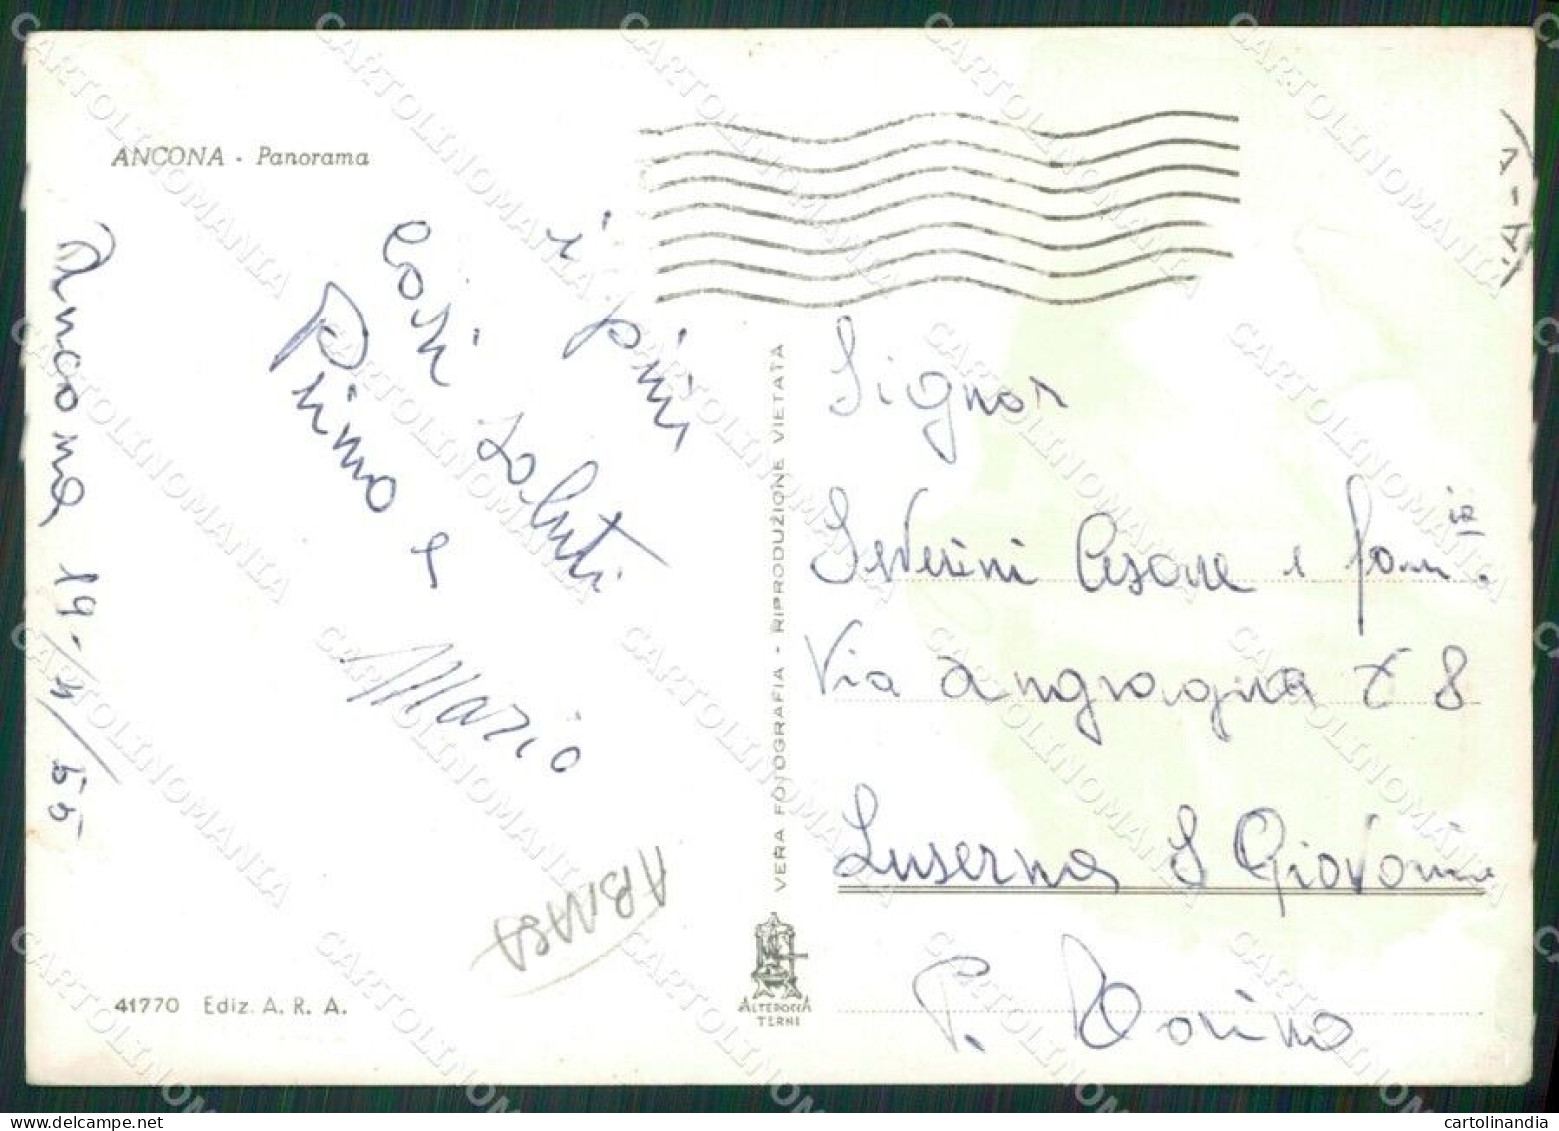 ANCONA - Panorama
Ancona 19-4/55
i più
cari saluti
Primo e
Mario
ABMASA
41770 Ediz. A. R. A.
VERA FOTOGRAFIA - RIPRODUZIONE VIETATA
ALTEROCCA
TERNI
Signor
Severini Cesare e fam.ia
Via Angrogna 8
Luserna S Giovanni
P. Torino
cartolinandia